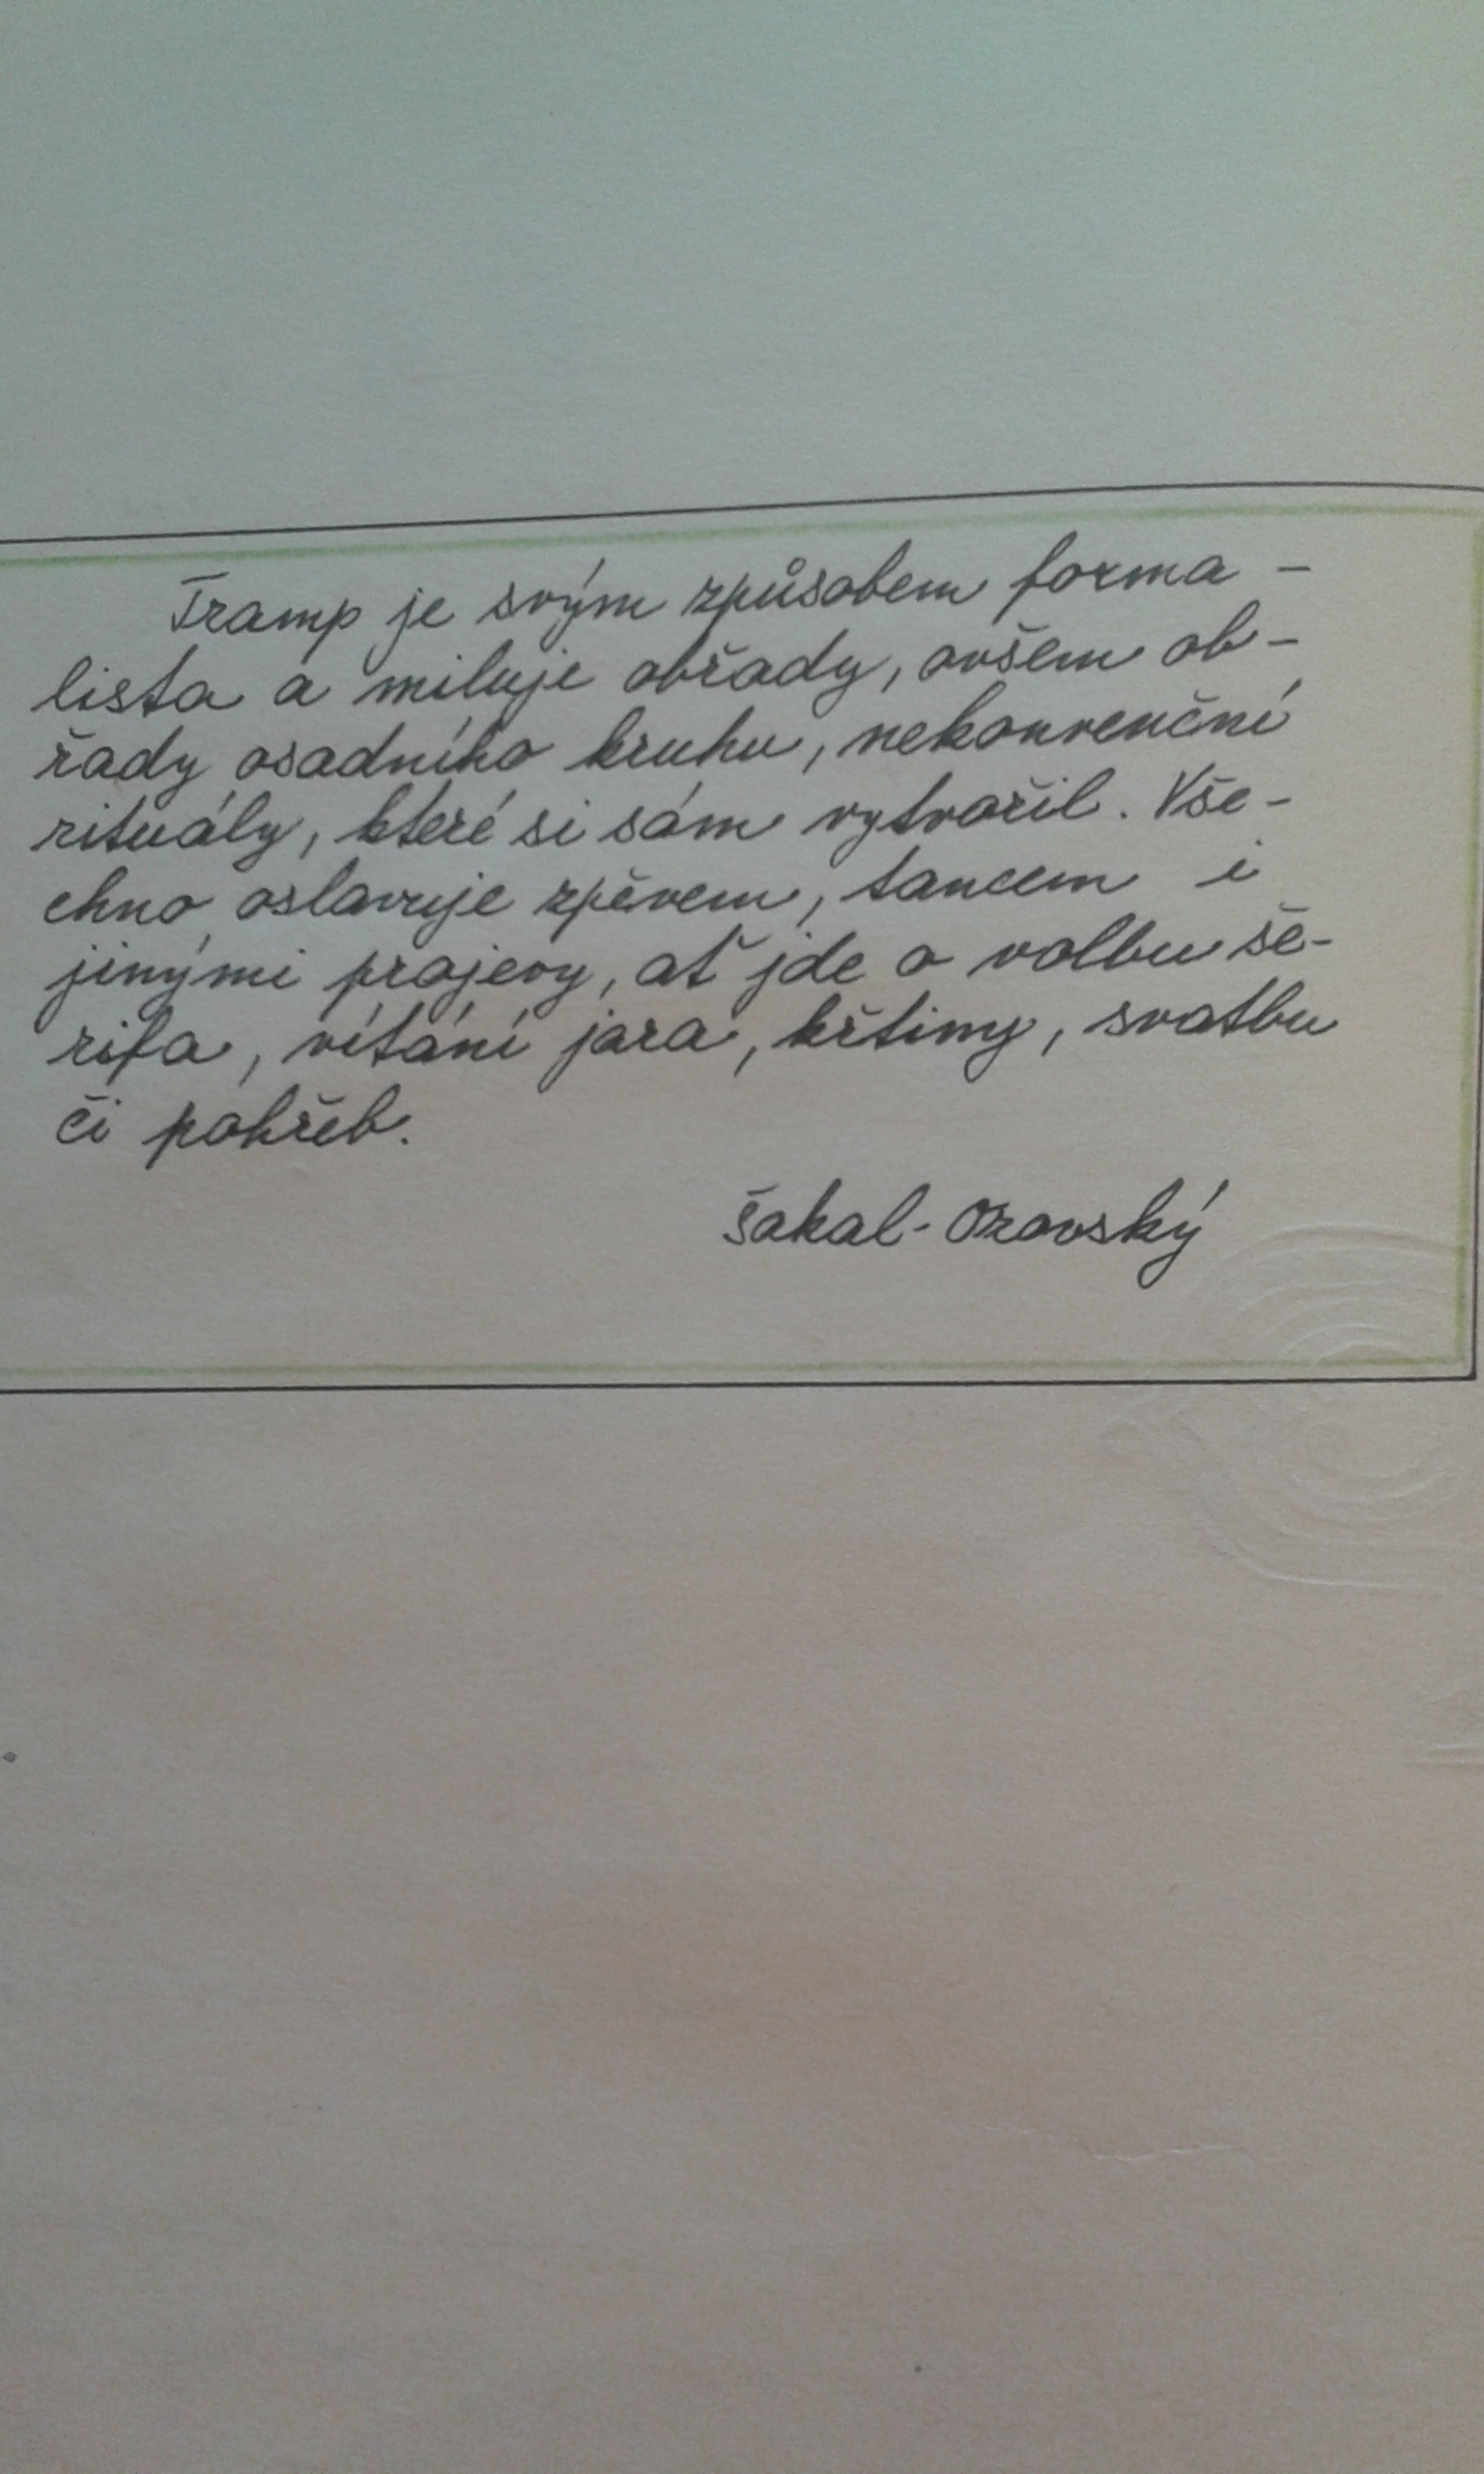 Tramp je svým způsobem forma-
lista a miluje obřady, ovšem ob-
řady osadního kruhu, nekonvenční
rituály, které si sám vytvořil. Vše-
chno oslavuje zpěvem, tancem i
jinými projevy, ať jde o volbu še-
rifa, vítání jara, křtiny, svatbu
či pohřeb.
Šakal-Oravský